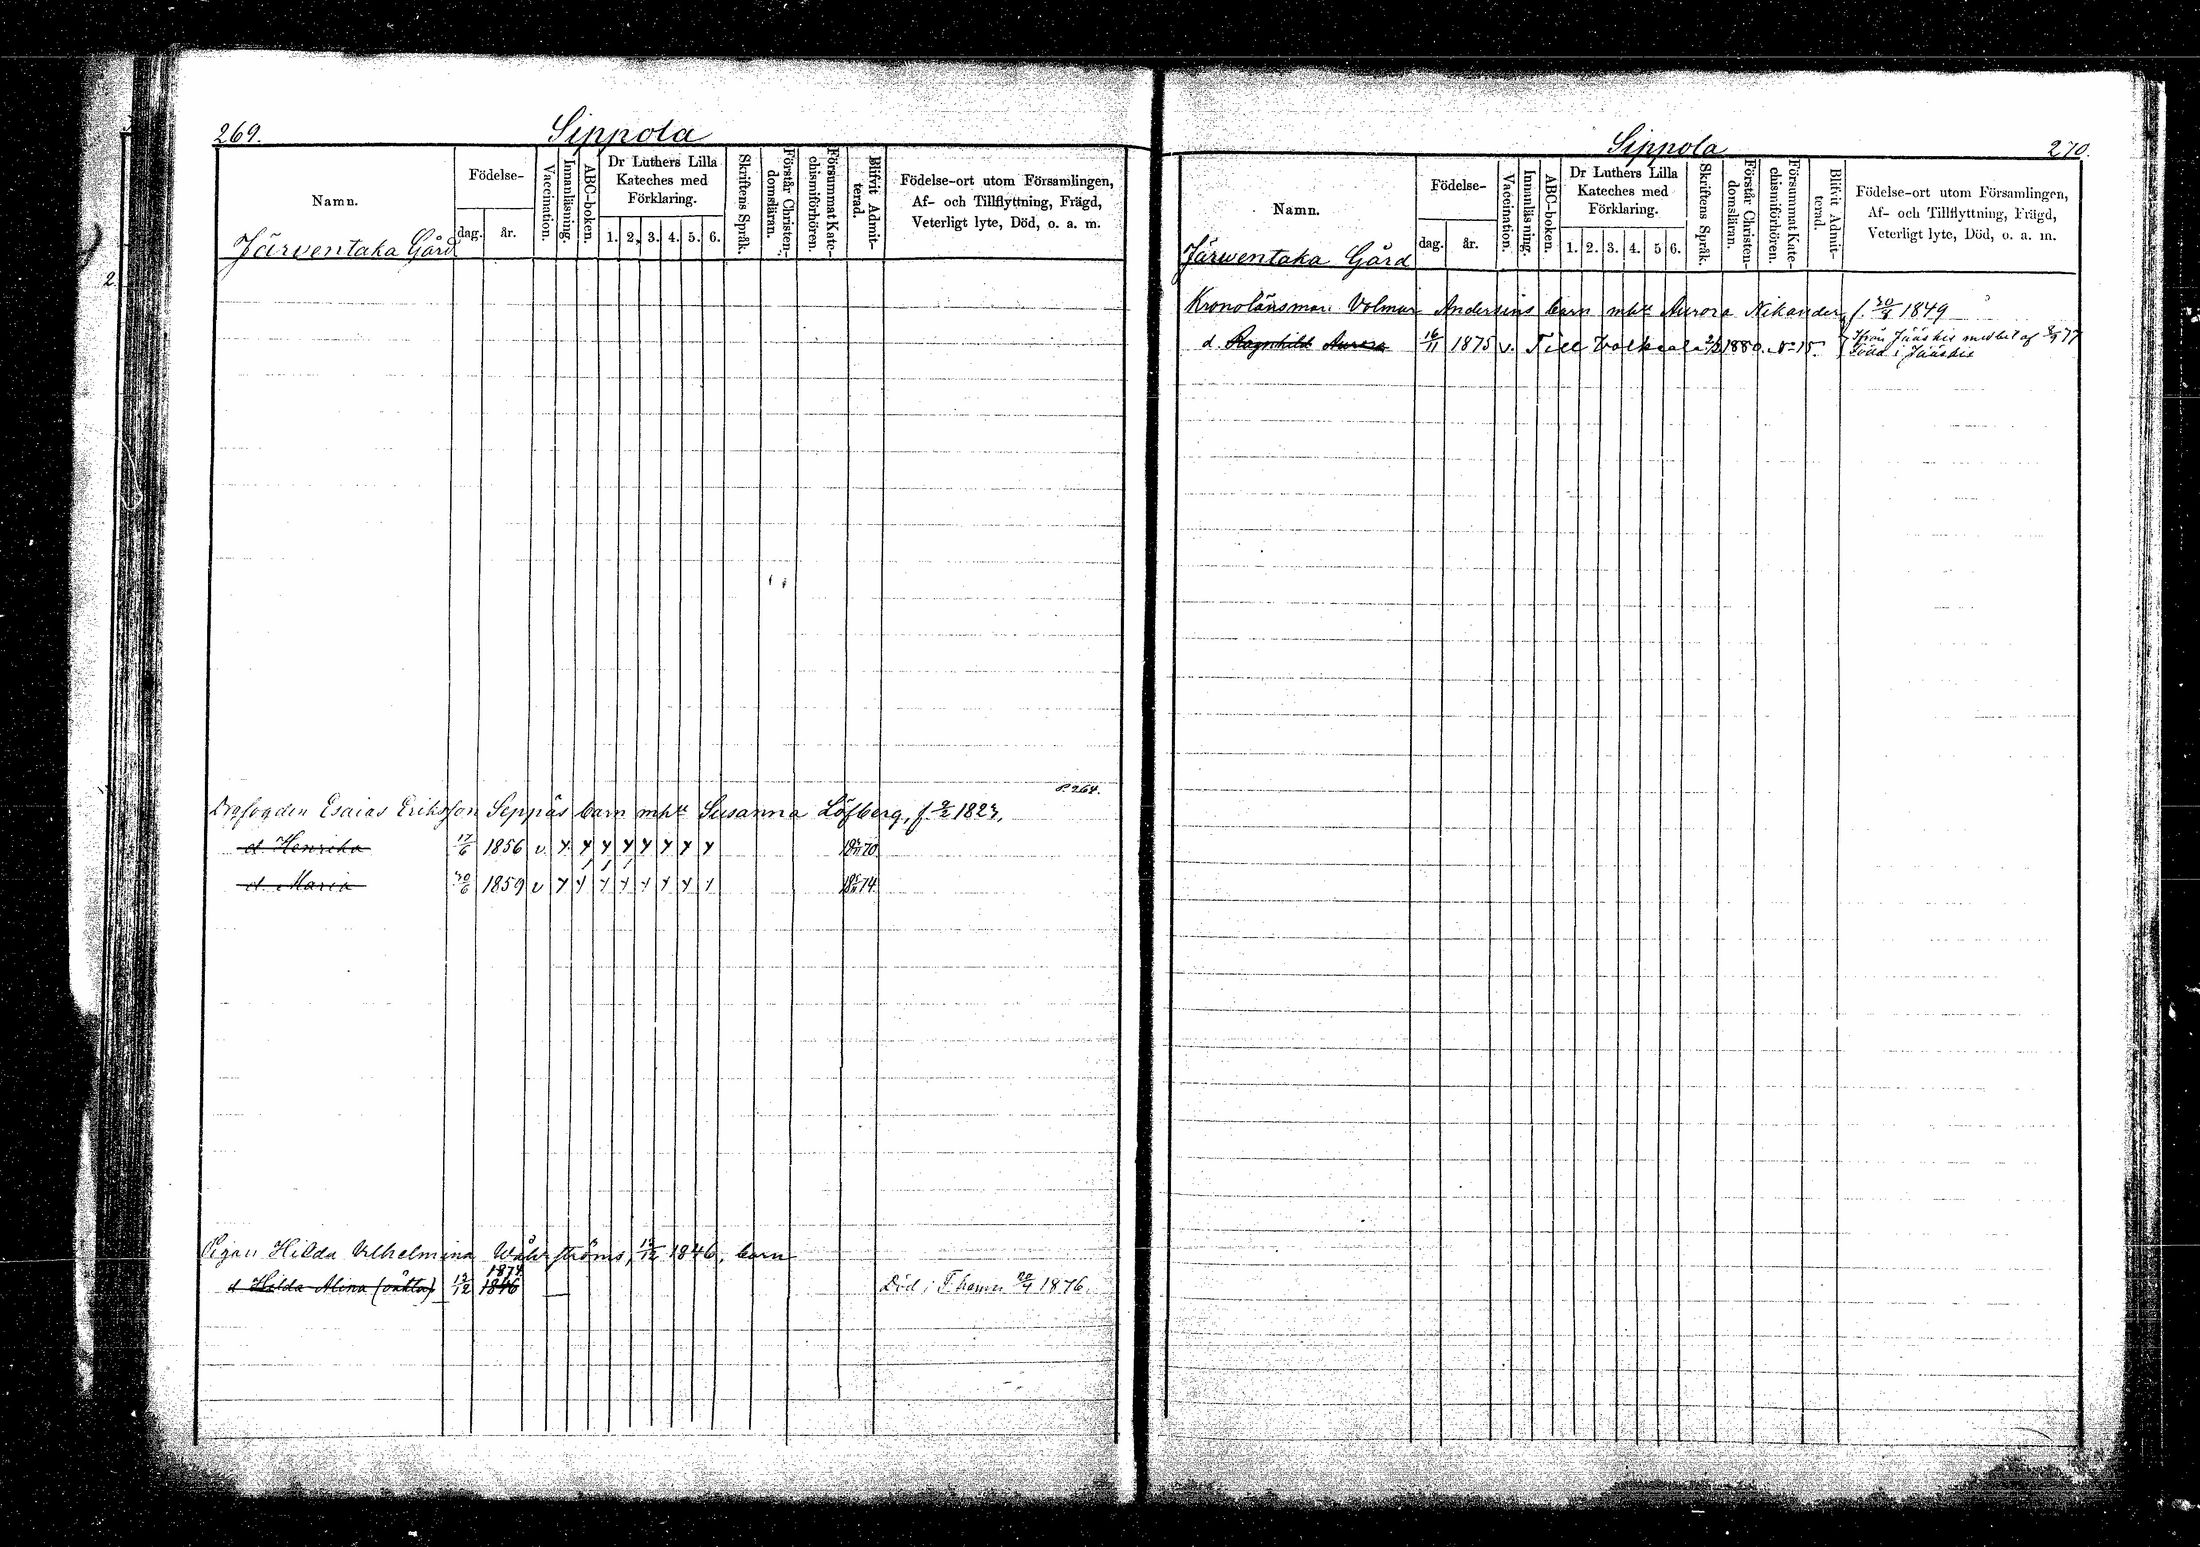 269.
Sippola
Namn.
Födelse-
dag.
år.
Vaccination.
Innanläsning.
ABC-boken.
Dr Luthers Lilla
Kateches med
Förklaring.
1. 2. 3. 4. 5. 6.
Skriftens Språk.
Förstår Christen-
domsläran.
Försummat Kate-
chismiförhören.
Blifvit Admit-
terad.
Födelse-ort utom Församlingen,
Af- och Tillflyttning, Frägd,
Veterligt lyte, Död, o. a. m.
Järventaka Gård
P. 264.
Esaias Eriksson Seppäs barn mhu Susanna Löfberg, f. 9/2 1823.
d. Henrika 17/6 1856 v 70
d. Maria 30/6 1859 v 74
Pigan Hilda Vilhelmina 12/12 1846, barn
1874
d Hilda Alina (oäkta) 12/12 1846 Död i 1876.
Sippola
270.
Namn.
Födelse-
dag.
år.
Vaccination.
Innanläsning.
ABC-boken.
Dr Luthers Lilla
Kateches med
Förklaring.
1. 2. 3. 4. 5 6.
Skriftens Språk.
Förstår Christen-
domsläran.
Försummat Kate-
chismiförhören.
Blifvit Admit-
terad.
Födelse-ort utom Församlingen,
Af- och Tillflyttning, Frägd,
Veterligt lyte, Död, o. a. m.
Järwentaka Gård
Kronolänsman Volmar Andersins barn mhu Aurora Nikander, f. 1849
d. Ragnhild Aurora 16/11 1875 v. Till Walkeala 1880. No 15. Ifrån Jääskis med bet af 77
Född i Jääskis